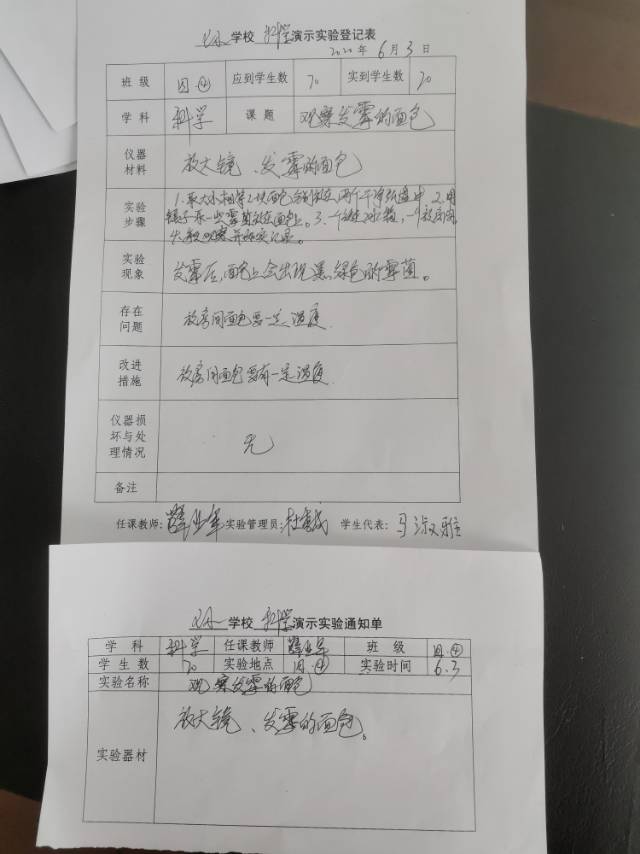 学校 科学 演示实验登记表
2020 年 6 月 3 日
班 级 四.④ 应到学生数 70 实到学生数 70
学 科 科学 课 题 观察发霉的面包
仪器材料 放大镜、发霉的面包
实验步骤 1.取大小相等2块面包分别放在两个干净纸盒中 2.用
镊子取一些霉菌放在面包上。3.
实验现象 发霉后,面包上会出现黑绿色的霉菌。
存在问题 放房间面包要一定湿度
改进措施 放房间面包要有一定湿度
仪器损坏与处理情况 无
备注
任课教师: 实验管理员: 学生代表: 马淑雅
学校 科学 演示实验通知单
学 科 科学 任课教师 班 级 四.④
学 生 数 70 实验地点 四.④ 实验时间 6.3
实验名称 观察发霉的面包
实验器材 放大镜、发霉的面包。